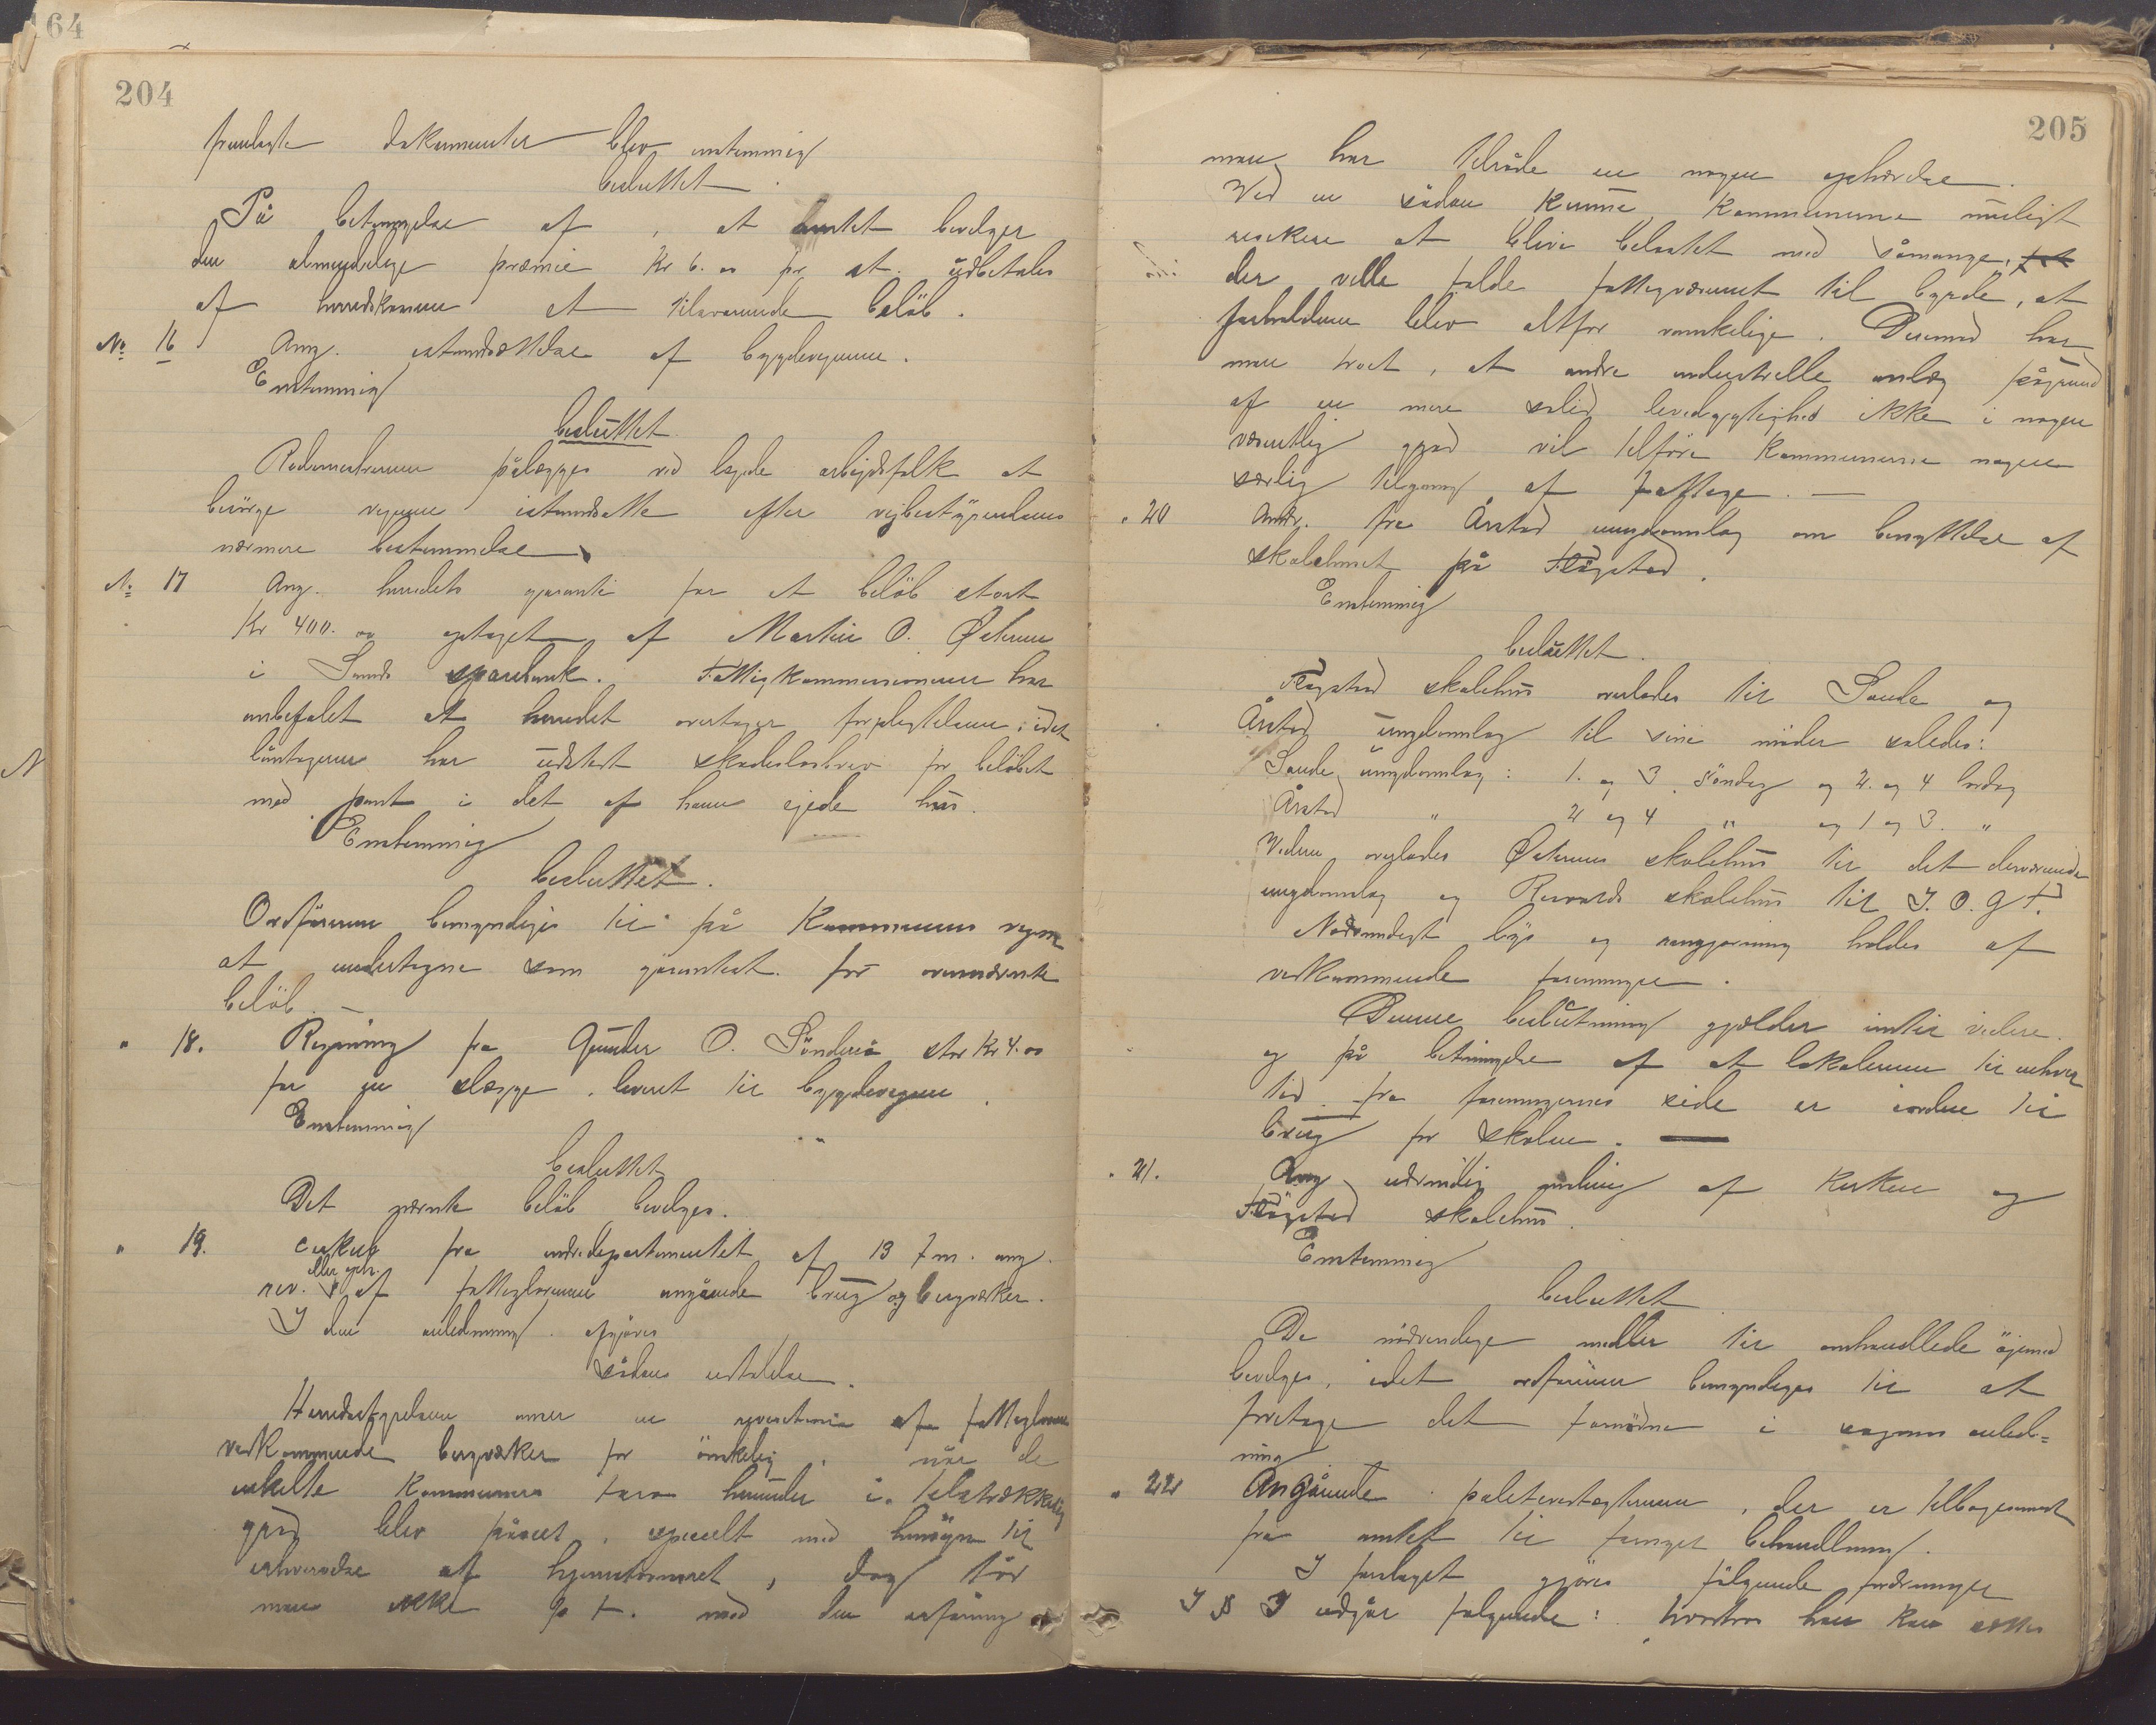 64
204
fremlagte dokumenter blev enstemmig
besluttet
På betingelse af, at amtet bevilger
den almindelige præmie Kr 6.00 pr st. udbetales
af herredskassen et tilsvarende beløb.
No 16 Ang. istandsættelse af bygdevejene.
Enstemmig
besluttet
Rodemestrene pålægges ved lejede arbejdsfolk at
besørge vejene istandsatte efter vejbestyrelsens
nærmere bestemmelse
No 17 Ang. herredets garanti for et beløb stort
Kr 400.00 optaget af Martin O. Østrem
i Sands sparebank. Fattigkommissionen har
anbefalet at herredet overtager forpligtelsen, idet
låntageren har udstedt skadesløsbrev for beløbet
med pant i det af ham ejede hus.
Enstemmig
besluttet.
Ordføreren bemyndiges til på Kommunens vegne
at undertegne som garantist for ovennævnte
beløb. —
" 18. Regning fra Gunder O. Söndenå stor Kr 4.00
for en slægge leveret til bygdevejene.
Enstemmig
besluttet
Det nævnte beløb bevilges.
" 19. Cirkulær fra indredepartementet af 13 f.m. ang.
rev. eller oph. af fattiglovens angående brug og bergværker.
I den anledning afgjøres
sådan udtalelse.
Herredsstyrelsen anser en revision af fattiglovens
vedkommende bergværker for ønskelig, når de
enkelte Kommuners tarv herunder i tilstrækkelig
grad blev påset, specielt med hensyn til
erhvervelse af hjemstavnsret, dog tør
man ikke p. t. med den erfaring
205
man har tilråde en nogen ophævelse.
Ved en sådan kunne Kommunerne muligt
risikere at blive belastet med såmange,
der ville falde fattigvæsenet til byrde, at
forholdene blev altfor vanskelige. Derimod har
man troet, at andre industrielle anlæg pågrund
af en mere solid levedygtighed ikke i nogen
væsentlig grad vil tilføre Kommunerne nogen
særlig tilgang af fattige. —
" 20 Andr. fra Årstad ungdomslag om benyttelse af
skolehuset på Fløgstad.
Enstemmig
besluttet.
Fløgstad skolehus overlades til Saude og
Årstad ungdomslag til sine møder saledes:
Saude ungdomslag: 1. og 3 Söndag og 2. og 4 lördag
Årstad " 2 og 4 " og 1 og 3. "
Videre overlades Østrems skolehus til det derværende
ungdomslag og skolehus til I. O. G. T.
Nødvendigt lys og rengjøring holdes af
vedkommende foreninger.
Denne beslutning gjælder indtil videre
og på betingelse af at lokalerne til enhver
tid fra foreningernes side er iorden til
brug for skolen. —
" 21. Ang. udvendig maling af Kirken og
Fløgstad skolehus.
Enstemmig
besluttet
De nødvendige midler til omhandlede øjemed
bevilges, idet ordføreren bemyndiges til at
foretage det fornødne i sagens anled=
ning
" 22 Angående politivedtægterne, der er tilbagesendt
fra amtet til fornyet behandling.
I forslaget gjøres følgende forandringer
I § 3 udgår følgende: hvorhos han kan sættes